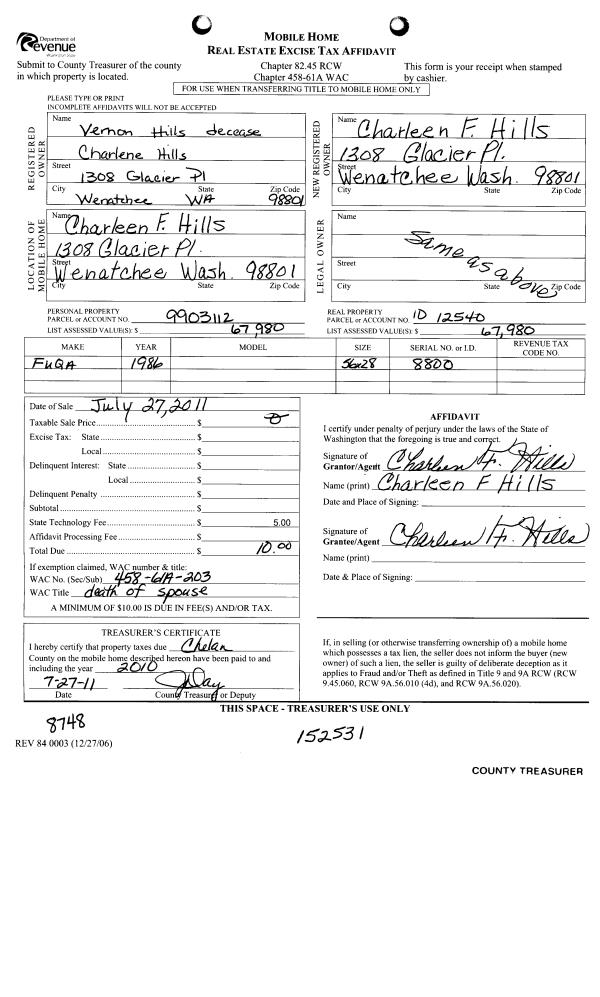 Department of
Revenue
Washington State
MOBILE HOME
REAL ESTATE EXCISE TAX AFFIDAVIT
Submit to County Treasurer of the county
in which property is located.
Chapter 82.45 RCW
Chapter 458-61A WAC
This form is your receipt when stamped
by cashier.
FOR USE WHEN TRANSFERRING TITLE TO MOBILE HOME ONLY
PLEASE TYPE OR PRINT
INCOMPLETE AFFIDAVITS WILL NOT BE ACCEPTED
REGISTERED OWNER
Name
Vernon Hills decease
Charlene Hills
Street
1308 Glacier Pl
City State Zip Code
Wenatchee WA 98801
NEW REGISTERED OWNER
Name Charleen F. Hills
1308 Glacier Pl.
Street
Wenatchee Wash. 98801
City State Zip Code
LOCATION OF MOBILE HOME
Name Charleen F. Hills
1308 Glacier Pl.
Street
Wenatchee Wash. 98801
City State Zip Code
LEGAL OWNER
Name
Same as above
Street
City State Zip Code
PERSONAL PROPERTY
PARCEL or ACCOUNT NO. 9903112
LIST ASSESSED VALUE(S): $ 67,980
REAL PROPERTY
PARCEL or ACCOUNT NO. ID 12540
LIST ASSESSED VALUE(S): $ 67,980
MAKE YEAR MODEL SIZE SERIAL NO. or I.D. REVENUE TAX CODE NO.
FUQA 1986 56x28 8800
Date of Sale July 27, 2011
Taxable Sale Price $ 0
Excise Tax: State $
Local $
Delinquent Interest: State $
Local $
Delinquent Penalty $
Subtotal $
State Technology Fee $ 5.00
Affidavit Processing Fee $
Total Due $ 10.00
If exemption claimed, WAC number & title:
WAC No. (Sec/Sub) 458-61A-203
WAC Title death of spouse
A MINIMUM OF $10.00 IS DUE IN FEE(S) AND/OR TAX.
AFFIDAVIT
I certify under penalty of perjury under the laws of the State of
Washington that the foregoing is true and correct.
Signature of
Grantor/Agent Charleen F. Hills
Name (print) Charleen F Hills
Date and Place of Signing:
Signature of
Grantee/Agent Charleen F. Hills
Name (print)
Date & Place of Signing:
TREASURER'S CERTIFICATE
I hereby certify that property taxes due Chelan
County on the mobile home described hereon have been paid to and
including the year 2010
7-27-11 JDay
Date County Treasurer or Deputy
If, in selling (or otherwise transferring ownership of) a mobile home
which possesses a tax lien, the seller does not inform the buyer (new
owner) of such a lien, the seller is guilty of deliberate deception as it
applies to Fraud and/or Theft as defined in Title 9 and 9A RCW (RCW
9.45.060, RCW 9A.56.010 (4d), and RCW 9A.56.020).
THIS SPACE - TREASURER'S USE ONLY
8748
152531
REV 84 0003 (12/27/06)
COUNTY TREASURER